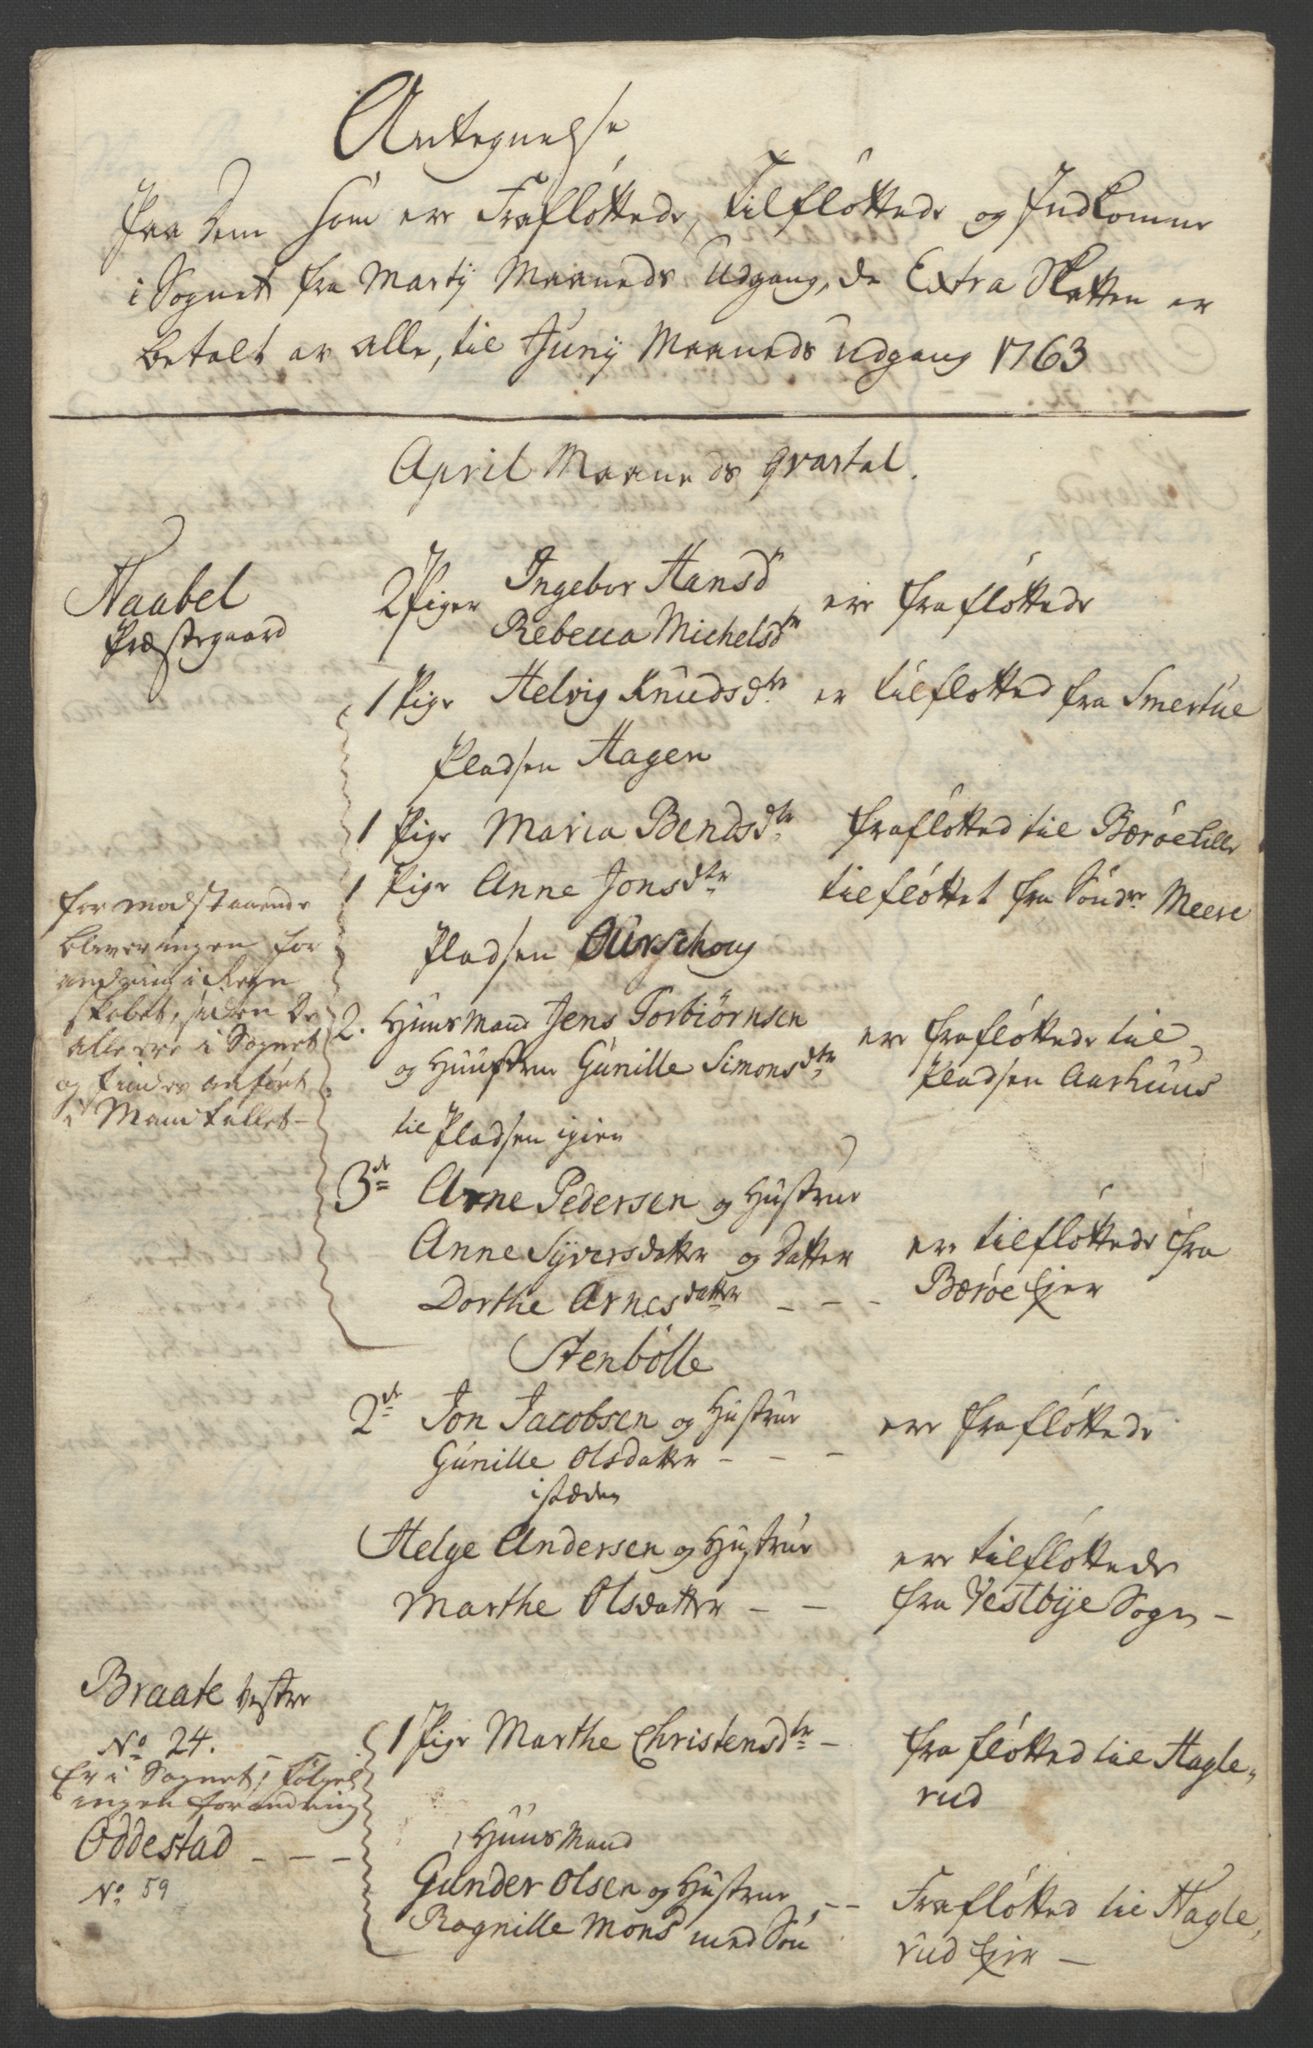 Antegnelse
Paa dem som ere Fraflöttede, Tilflöttede og Indkomne
i Sognet fra Martij Maaneds Udgang, da Extra Skatten er
betalt av alle, til Junij Maaneds udgang 1763
April Maaneds Qvartal.
Naabel
Præstegaard
2 Piger Ingebor Hansdr
Rebecca Michelsdtr
ere fraflöttede
1 Pige Helvig Knudsdtr er tilflötted fra Smertue
Pladsen Hagen
1 Pige Maria Bendsdtr fraflötted til Bærøe Lille
1 Pige Anne Jonsdtr tilflöttet fra Söndr Meere
Pladsen Ourschoug
for modstaaende
bliver ingen for
andring i Regn
skabet, siden De
alle ere i Sognet
og findes anfört
i Mandtallet -
2. Huusmand Jens Torbiörnsen
og Huustrue Gunille Simonsdtr
ere fraflöttede til
Pladsen Aarhuus
til Pladsen igien
3de Arne Pedersen og Hustrue
Anne Syversdatter og Datter
Dorthe Arnesdatter - - -
ere tilflöttede fra
Bærøe Eier
Stenbölle
2de Jon Jacobsen og Hustrue
Gunille Olsdatter - - -
ere fraflöttede
isteden
Helge Andersen og Hustrue
Marthe Olsdatter - -
ere tilflöttede
fra Vestbye Sogn -
Braate Vestre
No 24.
Er i Sognet, fölgel
ingen forandring
1 Pige Marthe Christensdtr -
fraflötted til Hagle,
rud
Oddestad - - -
No 59
1 Huusmand
Gunder Olsen og Hustrue
Ragnille Mons med Sön
- - Fraflötted til Hagle,
rud Eier -